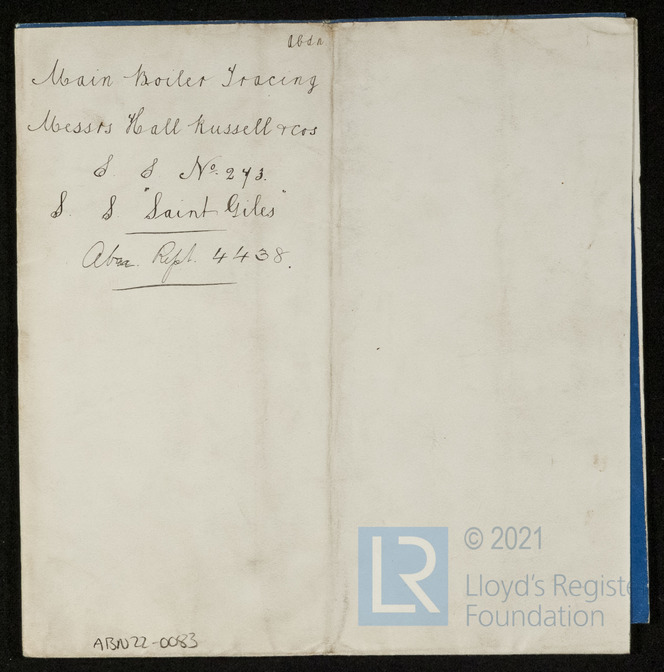 Abdn
Main Boiler Tracing
Messrs Hall Russell & Cos
S. S No. 273.
S. S "Saint Giles"
Abn. Rept. 4438.
ABN22-0083
LR
© 2021
Lloyd's Registe
Foundation